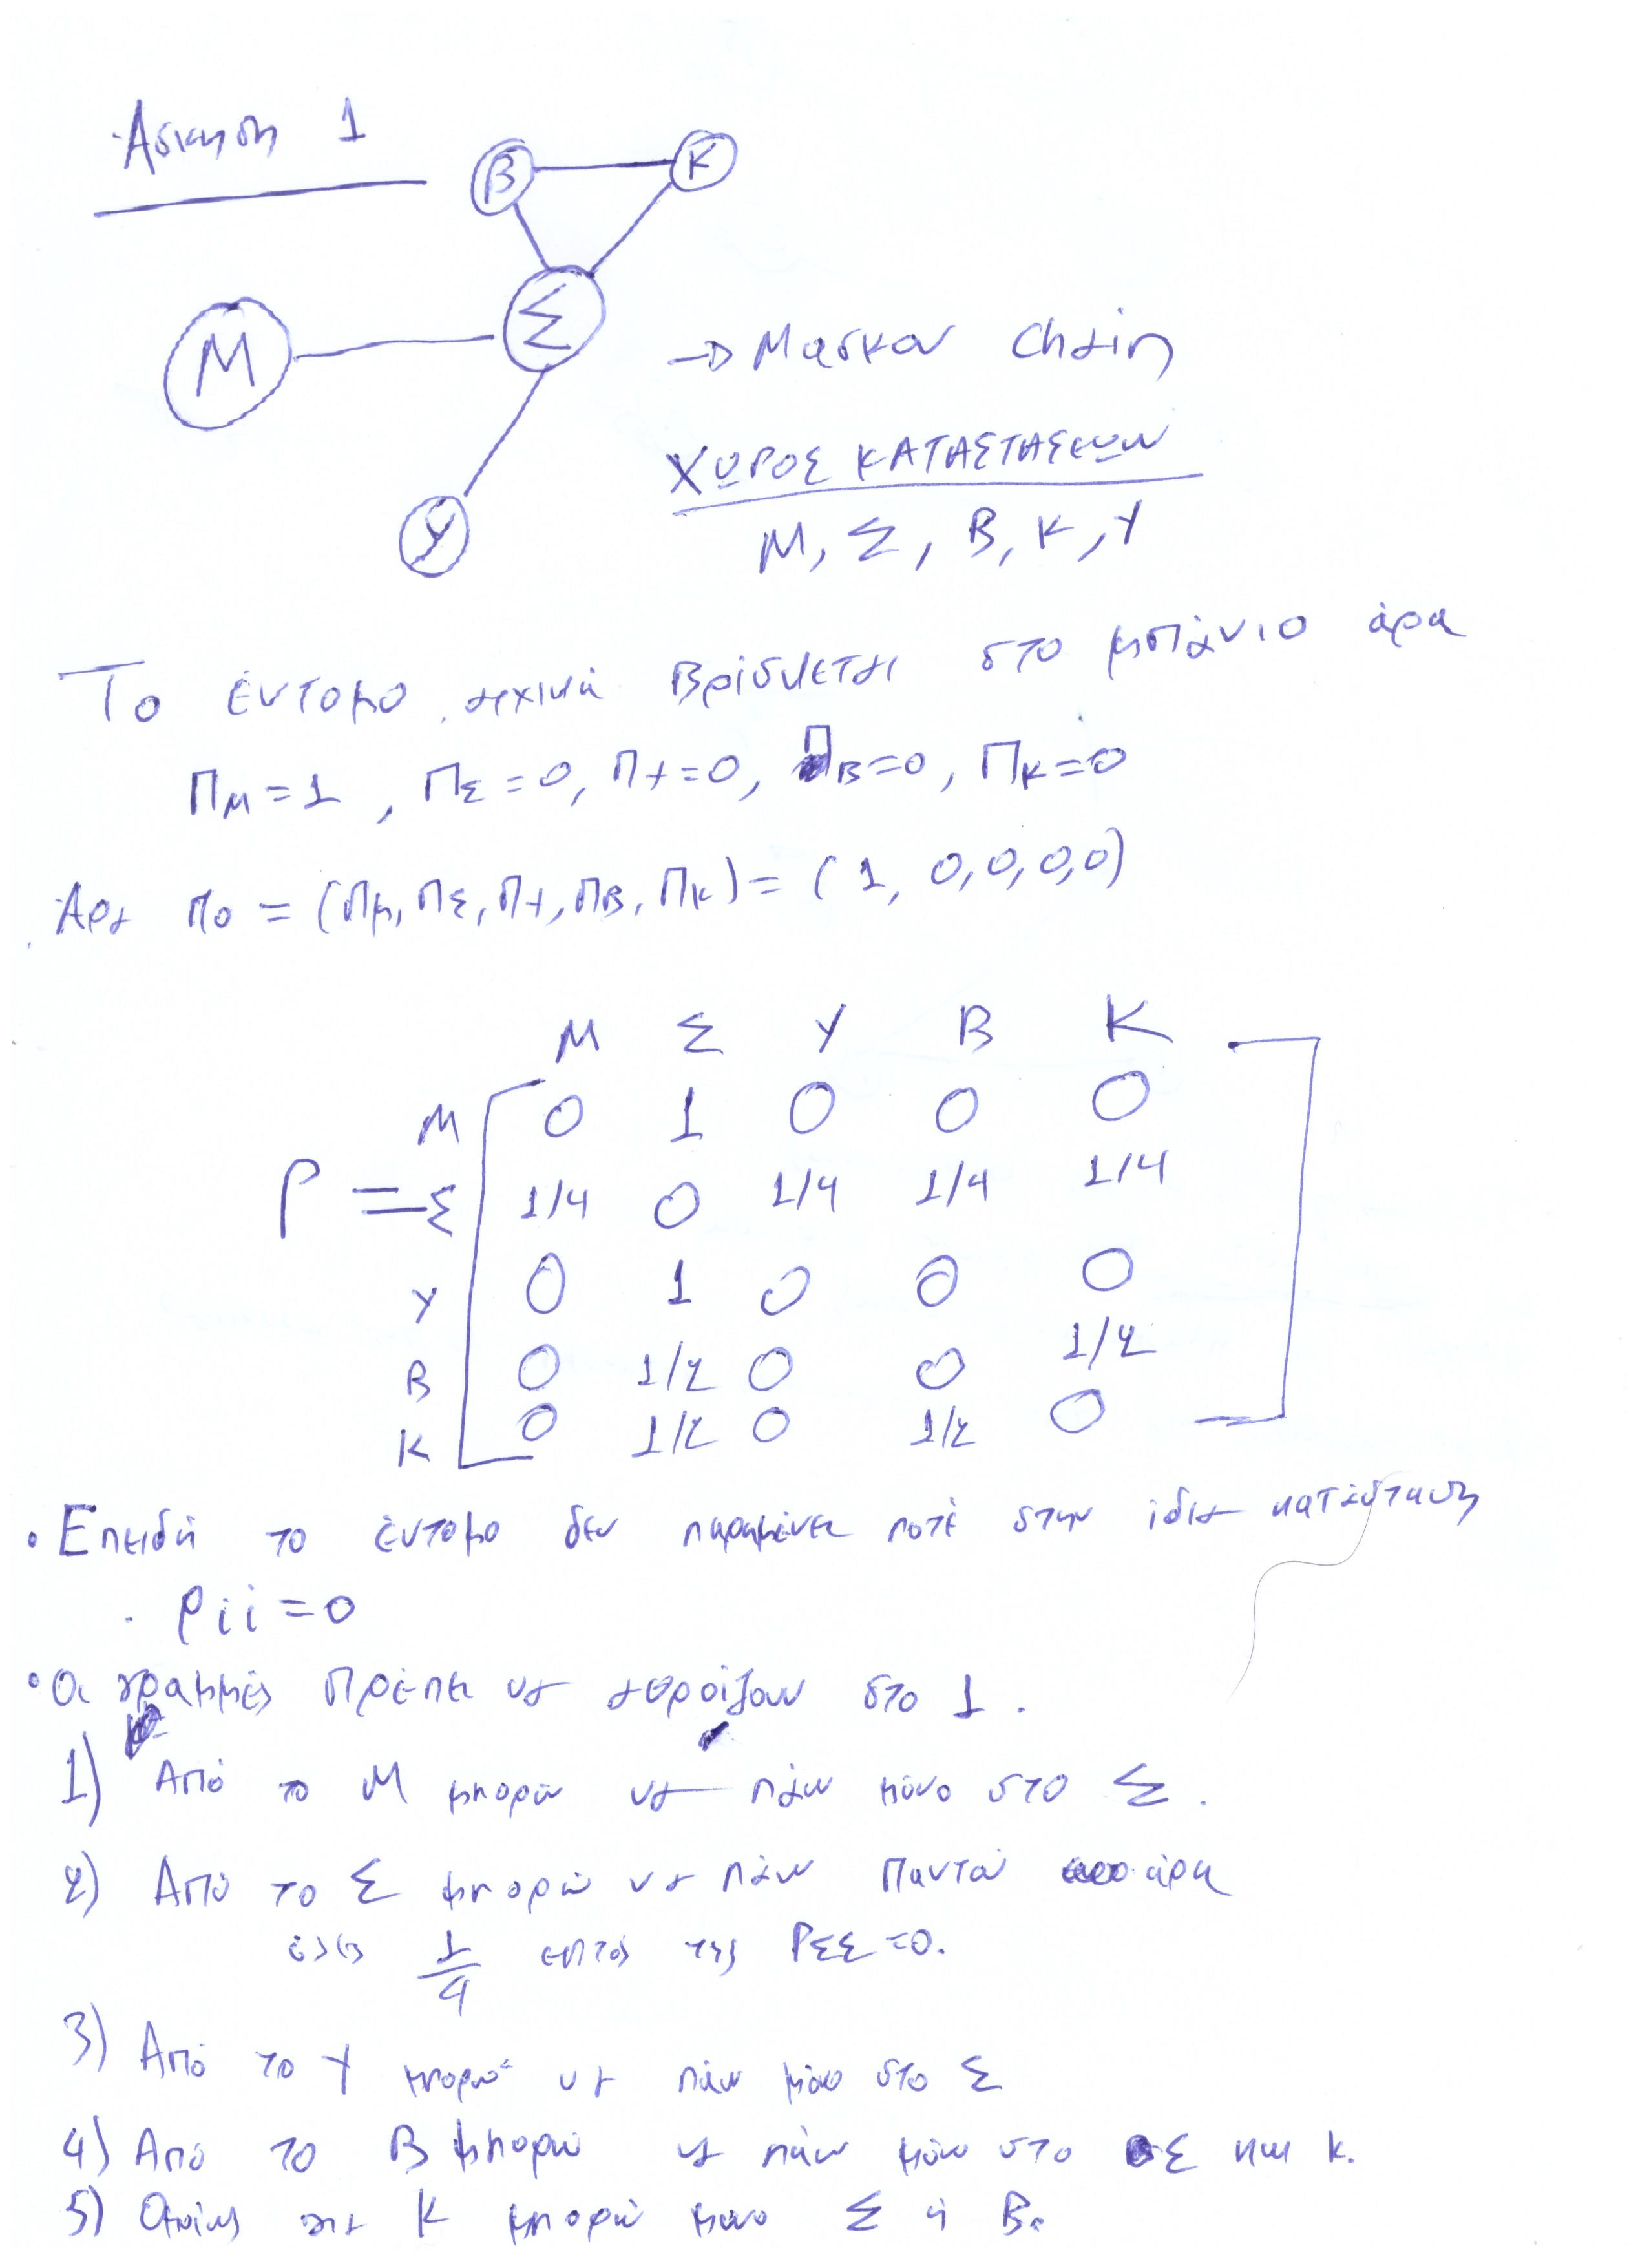 Άσκηση 1
B K
M Σ
Υ
→ Markov Chain
ΧΩΡΟΣ ΚΑΤΑΣΤΑΣΕΩΝ
Μ, Σ, Β, Κ, Υ
Το έντομο αρχικά βρίσκεται στο μπάνιο άρα
Πμ = 1 , ΠΣ = 0, ΠΥ = 0, ΠΒ = 0, ΠΚ = 0
Άρα π0 = (Πμ, ΠΣ, ΠΥ, ΠΒ, ΠΚ) = (1, 0, 0, 0, 0)
Μ Σ Υ Β Κ
Μ 0 1 0 0 0
P = Σ 1/4 0 1/4 1/4 1/4
Υ 0 1 0 0 0
Β 0 1/2 0 0 1/2
Κ 0 1/2 0 1/2 0
• Επειδή το έντομο δεν παραμένει ποτέ στην ίδια κατάσταση
Pii = 0
• Οι γραμμές πρέπει να αθροίζουν στο 1.
1) Από το Μ μπορώ να πάω μόνο στο Σ.
2) Από το Σ μπορώ να πάω παντού άρα
όλες 1/4 εκτός της PΣΣ = 0.
3) Από το Υ μπορώ να πάω μόνο στο Σ
4) Από το Β μπορώ να πάω μόνο στο Σ και Κ.
5) Ομοίως για Κ μπορώ μόνο Σ ή Β.